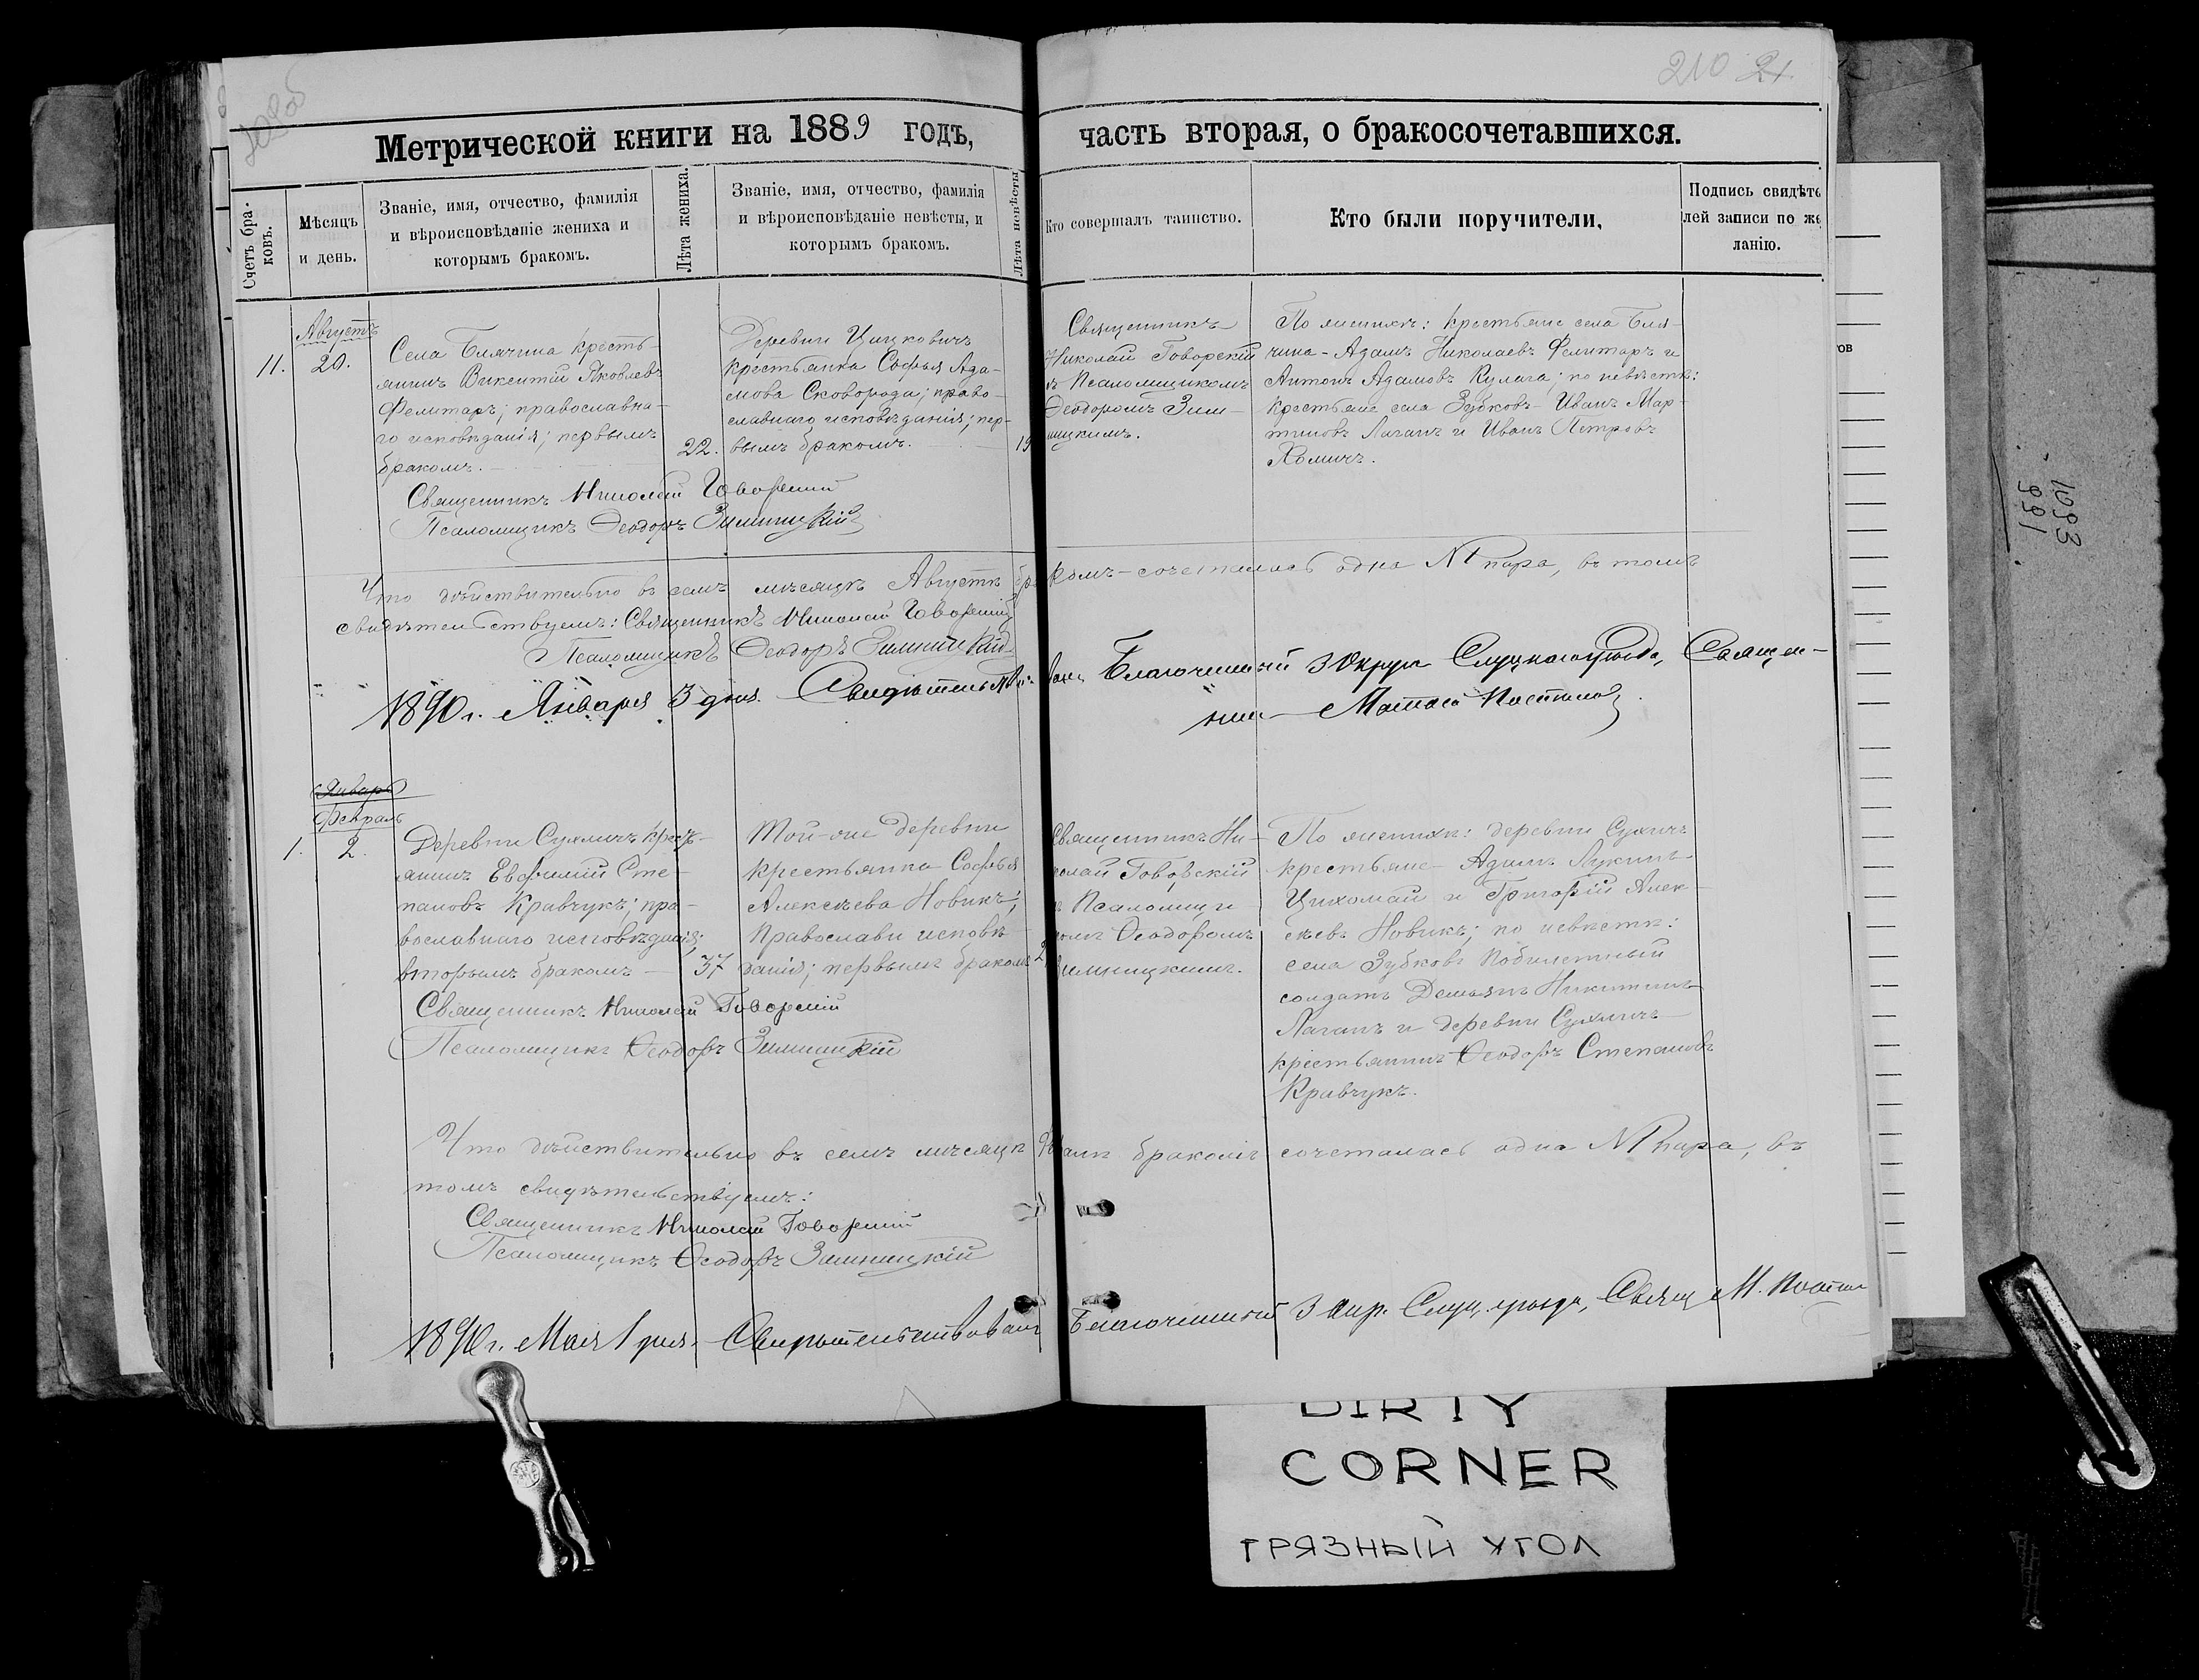 210 21
Метрической книги на 1889 годъ,
часть вторая, о бракосочетавшихся.
Счетъ браковъ.
Мѣсяцъ
и день.
Званіе, имя, отчество, фамилія
и вѣроисповѣданіе жениха и
которымъ бракомъ.
Лѣта жениха.
Званіе, имя, отчество, фамилія
и вѣроисповѣданіе невѣсты, и
которымъ бракомъ.
Лѣта невѣсты
Кто совершалъ таинство.
Кто были поручители,
Подпись свидѣте
лей записи по же
ланію.
11.
Августъ
20.
Села Блячина кресть-
янинъ Викентій Яковлевъ
Фелитаръ; православна-
го исповѣданія; первымъ
бракомъ.
22.
Деревни Цицковичъ
крестьянка Софья Ада-
мова Сковорода; право-
славнаго исповѣданія; пер-
вымъ бракомъ.
19
Священникъ
Николай Говорскій
съ Псаломщикомъ
Ѳеодоромъ Зим-
ницкимъ.
По женихѣ: крестьяне села Бля-
чина - Адамъ Николаевъ Фелитаръ и
Антонъ Адамовъ Кулага; по невѣстѣ:
крестьяне села Зубковъ Иванъ Мар-
тиновъ Лаганъ и Иванъ Петровъ
Хомичъ.
Священникъ Николай Говорскій
Псаломщикъ Ѳеодоръ Зимницкій
Что дѣйствительно въ семъ мѣсяцѣ Августѣ бракомъ-сочеталась одна №1 пара, въ томъ
свидѣтельствуемъ: Священникъ Николай Говорскій
Псаломщикъ Ѳеодоръ Зимницкій
1890 г. Января 3 дня. Свидѣтельствовалъ Благочинный 3 Округа Слуцкаго уѣзда, Священ-
никъ
Январь
Февраль
1.
2.
Деревни Сухличъ крест-
янинъ Евфимій Сте-
пановъ Кравчукъ; пра-
вославнаго исповѣданія;
вторымъ бракомъ
37
Той-же деревни
крестьянка Софья
Алексѣева Новикъ;
православн исповѣ-
данія; первымъ бракомъ
2
Священникъ Ни-
колай Говорскій
съ Псаломщи
комъ Ѳеодоромъ
Зимницкимъ.
По женихѣ: деревни Сухличъ
крестьяне - Адамъ Лукинъ
Цихомай и Григорій Алек-
сѣевъ Новикъ; по невѣстѣ:
села Зубковъ побилетный
солдатъ Демьянъ Никитинъ
Лаганъ и деревни Сухличъ
крестьянинъ Ѳеодоръ Степановъ
Кравчукъ.
Священникъ Николай Говорскій
Псаломщикъ Ѳеодоръ Зимницкій
Что дѣйствительно въ семъ мѣсяцѣ Февралѣ бракомъ сочеталась одна №1 пара, въ
томъ свидѣтельствуемъ:
Священникъ Николай Говорскій
Псаломщикъ Ѳеодоръ Зимницкій
1890 г. Мая 1 дня. Свидѣтельствовалъ Благочинный 3 окр. Слуц. уѣзда, Свящ М.
ов
1093
991
DIRTY
CORNER
ГРЯЗНЫЙ УГОЛ